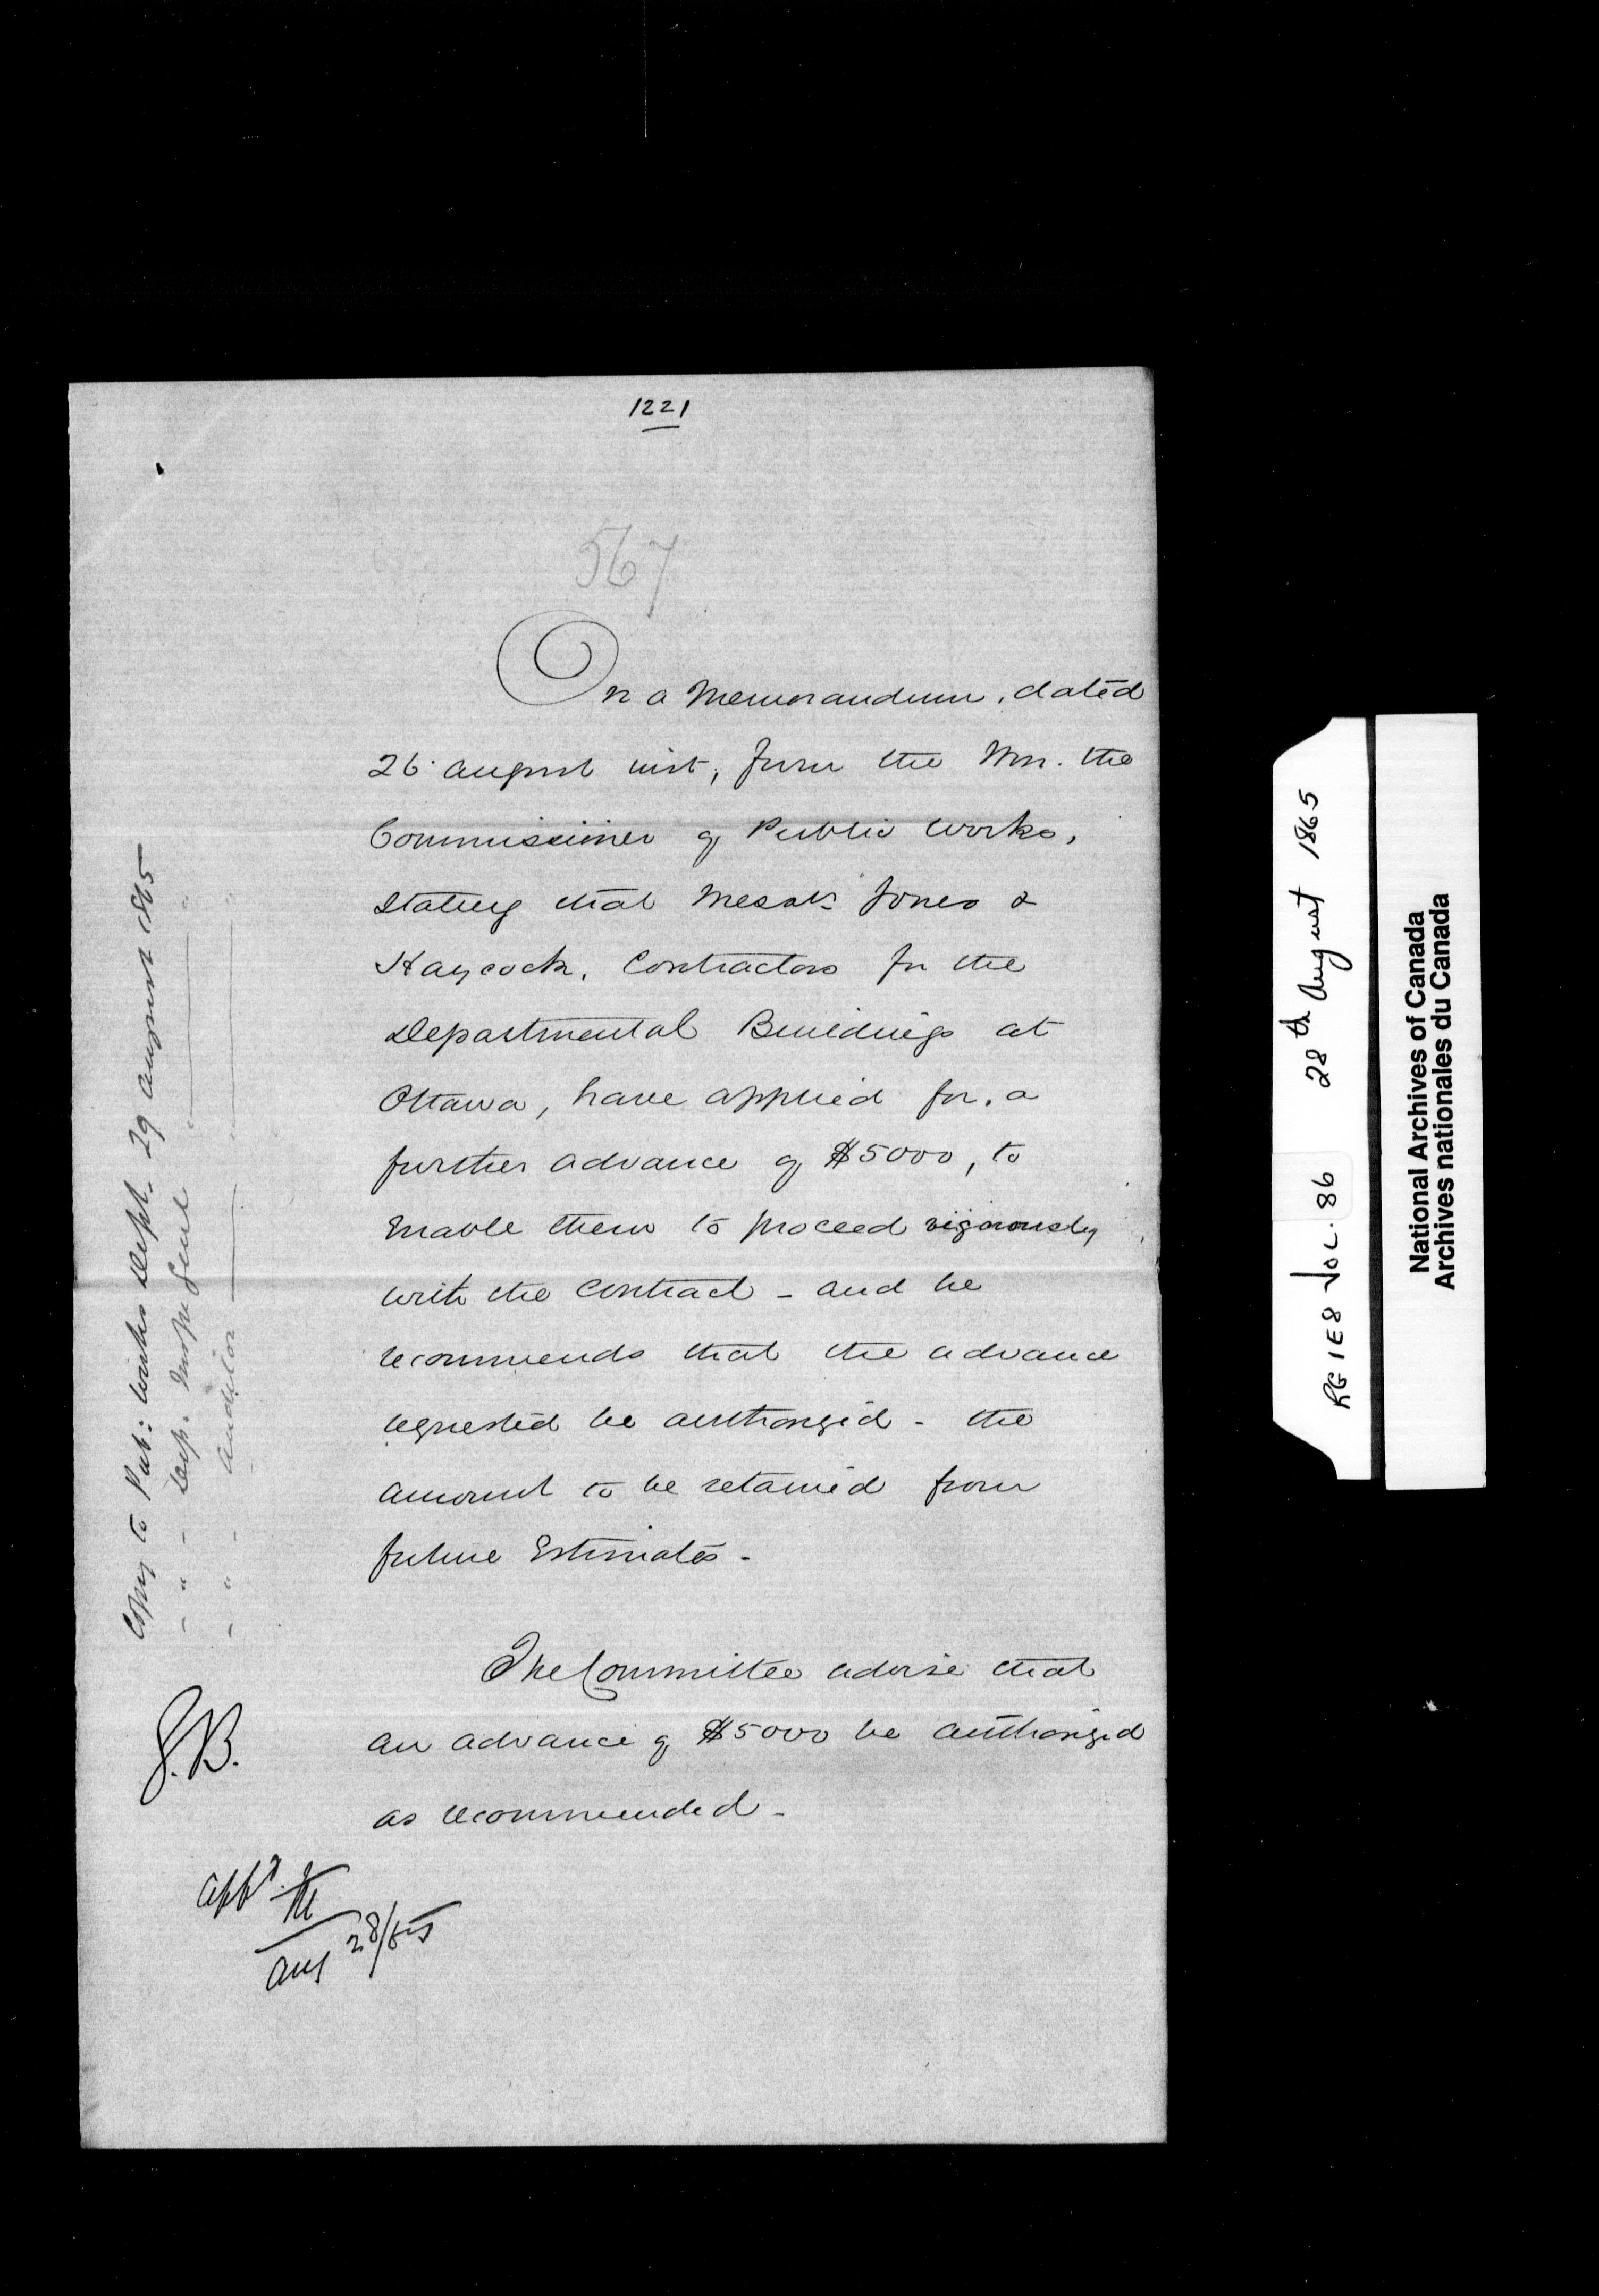 1221
567
On a Memorandum, dated
26 August inst, from the Hon. the
Commissioner of Public Works,
stating that Messrs Jones &
Haycock, Contractors for the
Departmental Buildings at
Ottawa, have applied for, a
further advance of $5000, to
enable them to proceed vigorously
with the Contract - and he
recommends that the advance
requested be authorized - the
amount to be retained from
future Estimates -
The Committee advise that
an advance of $5000 be authorized
as recommended -
Copy to Pub: Works Dept. 29 August 1865
- " - Dep. Insp Genl " "
- " - Auditor " "
appd.
Aug 28/65
RG 1 E8 VOL. 86 28th August 1865
National Archives of Canada
Archives nationales du Canada